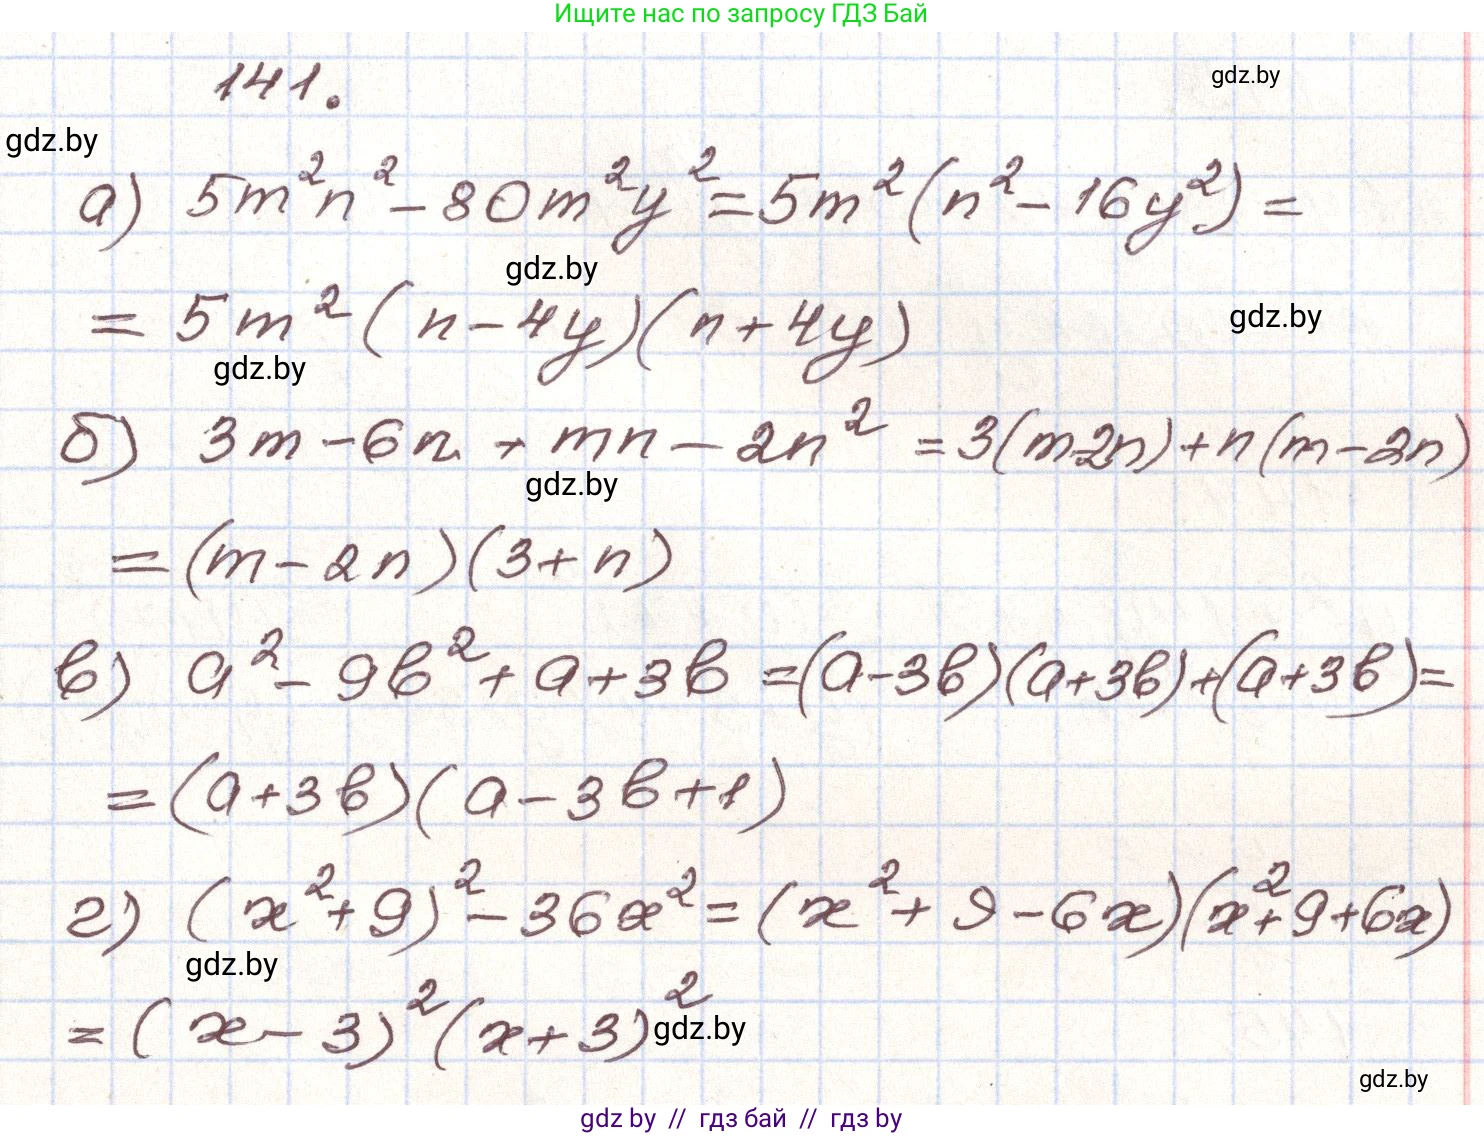 Ищите нас по запросу ГДЗ Бай
141.
gdz.by
gdz.by
а) 5m²n² - 80m²y² = 5m²(n² - 16y²) =
gdz.by
= 5m²(n - 4y)(n + 4y)
gdz.by
gdz.by
б) 3m - 6n + mn - 2n² = 3(m-2n) + n(m - 2n)
gdz.by
= (m - 2n)(3 + n)
в) a² - 9b² + a + 3b = (a - 3b)(a + 3b) + (a + 3b) =
= (a + 3b)(a - 3b + 1)
г) (x² + 9)² - 36x² = (x² + 9 - 6x)(x² + 9 + 6x)
gdz.by
= (x - 3)²(x + 3)²
gdz.by
gdz.by
gdz by // гдз бай // гдз by